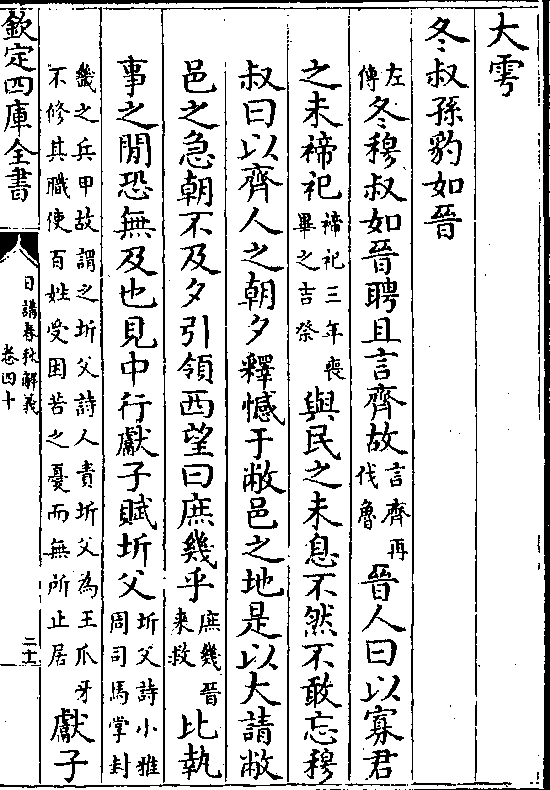 大雩
冬叔孫豹如晉
左傳冬穆叔如晉聘且言齊故言齊再伐魯晉人曰以寡君
之未禘祀禘祀三年喪畢之吉祭與民之未息不然不敢忘穆
叔曰以齊人之朝夕釋憾于敝邑之地是以大請敝
邑之急朝不及夕引領西望曰庶幾乎庶幾晉來救比執
事之閒恐無及也見中行獻子賦圻父圻父詩小雅周司馬掌封
畿之兵甲故謂之圻父詩人責圻父為王爪牙不修其職使百姓受困苦之憂而無所止居獻子
欽定四庫全書
日講春秋解義
卷四十
二十